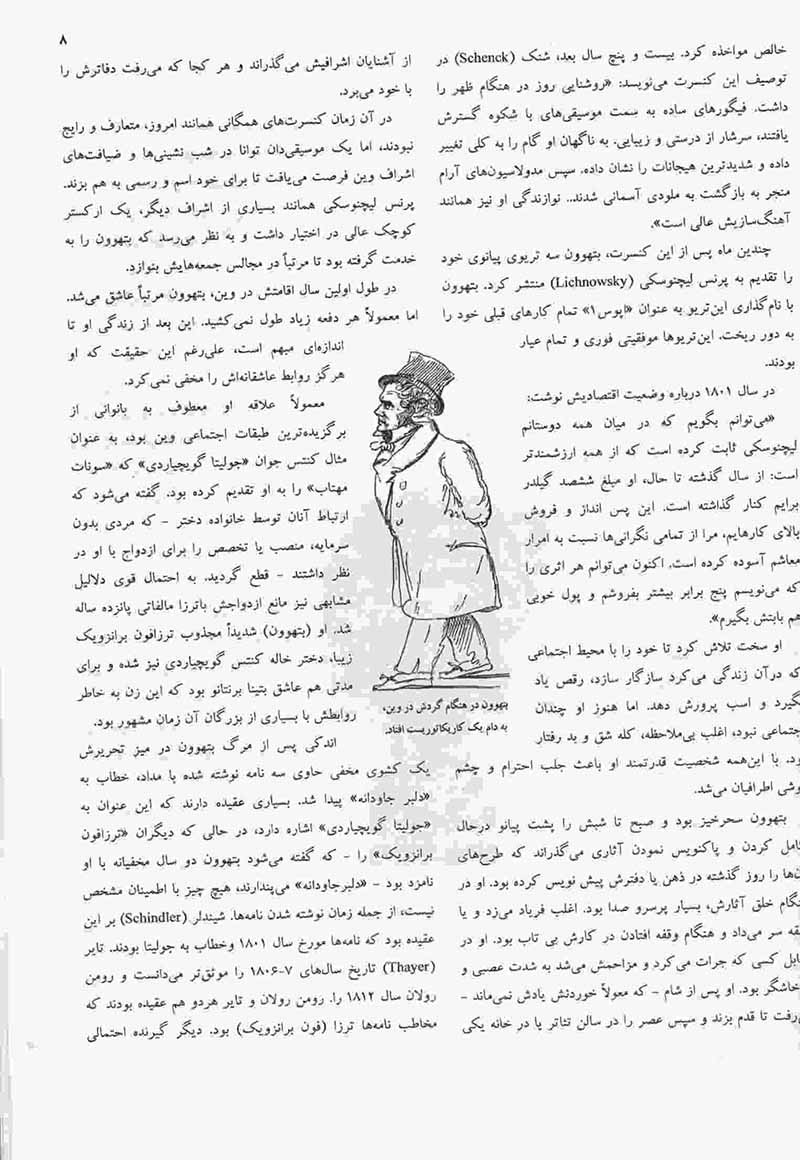 ۸
خالص مواخذه کرد. بیست و پنج سال بعد، شنک (Schenck) در
توصیف این کنسرت می‌نویسد: «روشنایی روز در هنگام ظهر را
داشت. فیگورهای ساده به سمت موسیقی‌های با شکوه گسترش
یافتند، سرشار از درستی و زیبایی. به ناگهان او گام را به کلی تغییر
داده و شدیدترین هیجانات را نشان داده. سپس مدولاسیون‌های آرام
منجر به بازگشت به ملودی آسمانی شدند.. نوازندگی او نیز همانند
آهنگ‌سازیش عالی است».
چندین ماه پس از این کنسرت، بتهوون سه تریوی پیانوی خود
را تقدیم به پرنس لیچنوسکی (Lichnowsky) منتشر کرد. بتهوون
با نام‌گذاری این‌تریو به عنوان «اپوس۱» تمام کارهای قبلی خود را
به دور ریخت. این‌تریوها موفقیتی فوری و تمام عیار
بودند.
در سال ۱۸۰۱ درباره وضعیت اقتصادیش نوشت:
«می‌توانم بگویم که در میان همه دوستانم
لیچنوسکی ثابت کرده است که از همه ارزشمندتر
است: از سال گذشته تا حال، او مبلغ ششصد گیلدر
برایم کنار گذاشته است. این پس انداز و فروش
بالای کارهایم، مرا از تمامی نگرانی‌ها نسبت به امرار
معاشم آسوده کرده است. اکنون می‌توانم هر اثری را
که می‌نویسم پنج برابر بیشتر بفروشم و پول خوبی
هم بابتش بگیرم».
او سخت تلاش کرد تا خود را با محیط اجتماعی
که درآن زندگی می‌کرد سازگار سازد، رقص یاد
بگیرد و اسب پرورش دهد. اما هنوز او چندان
اجتماعی نبود، اغلب بی‌ملاحظه، کله شق و بد رفتار
بود. با این‌همه شخصیت قدرتمند او باعث جلب احترام و چشم
پوشی اطرافیان می‌شد.
بتهوون سحرخیز بود و صبح تا شبش را پشت پیانو درحال
کامل کردن و پاکنویس نمودن آثاری می‌گذراند که طرح‌های
آن‌ها را روز گذشته در ذهن یا دفترش پیش نویس کرده بود. او در
هنگام خلق آثارش، بسیار پرسرو صدا بود. اغلب فریاد می‌زد و یا
سر می‌داد و هنگام وقفه افتادن در کارش بی تاب بود. او در
مقابل کسی که جرات می‌کرد و مزاحمش می‌شد به شدت عصبی و
پرخاشگر بود. او پس از شام – که معولاً خوردنش یادش نمی‌ماند –
می‌رفت تا قدم بزند و سپس عصر را در سالن تئاتر یا در خانه یکی
از آشنایان اشرافیش می‌گذراند و هر کجا که می‌رفت دفاترش را
با خود می‌برد.
در آن زمان کنسرت‌های همگانی همانند امروز، متعارف و رایج
نبودند، اما یک موسیقی‌دان توانا در شب نشینی‌ها و ضیافت‌های
اشراف وین فرصت می‌یافت تا برای خود اسم و رسمی به هم بزند.
پرنس لیچنوسکی همانند بسیاری از اشراف دیگر، یک ارکستر
کوچک عالی در اختیار داشت و به نظر می‌رسد که بتهوون را به
خدمت گرفته بود تا مرتباً در مجالس جمعه‌هایش بنوازد.
در طول اولین سال اقامتش در وین، بتهوون مرتباً عاشق می‌شد.
اما معمولاً هر دفعه زیاد طول نمی‌کشید. این بعد از زندگی او تا
اندازه‌ای مبهم است، علی‌رغم این حقیقت که او
هرگز روابط عاشقانه‌اش را مخفی نمی‌کرد.
معمولاً علاقه او معطوف به بانوانی از
برگزیده‌ترین طبقات اجتماعی وین بود، به عنوان
مثال کنتس جوان «جولیتا گویچیاردی» که «سونات
مهتاب» را به او تقدیم کرده بود. گفته می‌شود که
ارتباط آنان توسط خانواده دختر – که مردی بدون
سرمایه، منصب یا تخصص را برای ازدواج با او در
نظر داشتند – قطع گردید. به احتمال قوی دلالیل
مشابهی نیز مانع ازدواجش باترزا مالفاتی پانزده ساله
شد. او (بتهوون) شدیداً مجذوب ترزافون برانزویک
زیبا، دختر خاله کنتس گویچیاردی نیز شده و برای
مدتی هم عاشق بتینا برنتانو بود که این زن به خاطر
روابطش با بسیاری از بزرگان آن زمان مشهور بود.
اندکی پس از مرگ بتهوون در میز تحریرش
یک کشوی مخفی حاوی سه نامه نوشته شده با مداد، خطاب به
«دلبر جاودانه» پیدا شد. بسیاری عقیده دارند که این عنوان به
«جولیتا گویچیاردی» اشاره دارد، در حالی که دیگران «ترزافون
برانزویک» را – که گفته می‌شود بتهوون دو سال مخفیانه با او
نامزد بود – «دلبرجاودانه» می‌پندارند، هیچ چیز با اطمینان مشخص
نیست، از جمله زمان نوشته شدن نامه‌ها. شیندلر (Schindler) بر این
عقیده بود که نامه‌ها مورخ سال ۱۸۰۱ وخطاب به جولیتا بودند. تایر
(Thayer) تاریخ سال‌های ۷-۱۸۰۶ را موثق‌تر می‌دانست و رومن
رولان سال ۱۸۱۲ را. رومن رولان و تایر هردو هم عقیده بودند که
مخاطب نامه‌ها ترزا (فون برانزویک) بود. دیگر گیرنده احتمالی
بتهوون در هنگام گردش در وین،
به دام یک کاریکاتوریست افتاد.